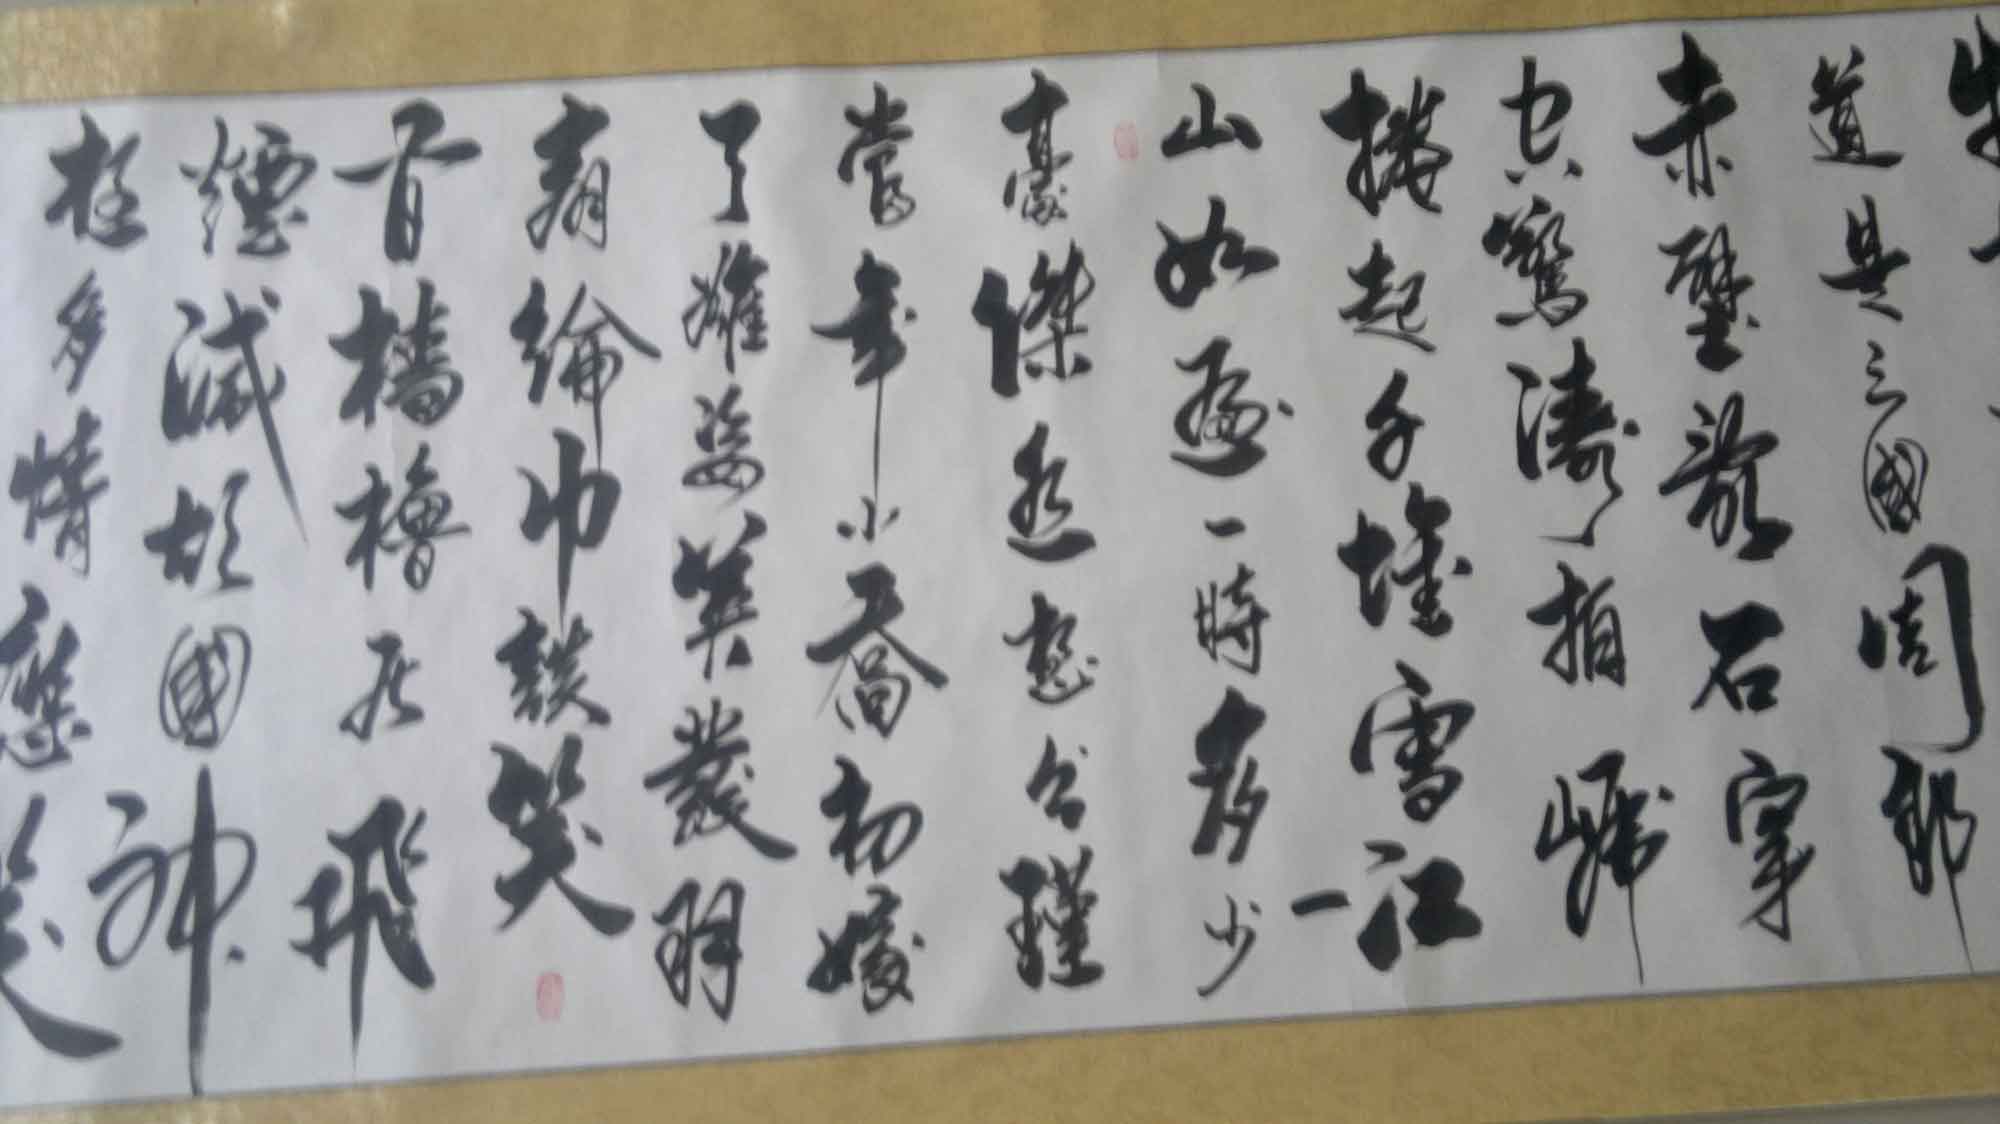 道是三國周郎
赤壁亂石穿
空驚濤拍
捲起千堆雪江
山如畫一時多少
豪傑遙想公瑾
當年小喬初嫁
了雄姿英發羽
扇綸巾談笑
檣櫓灰飛
煙滅故國神
多情應笑